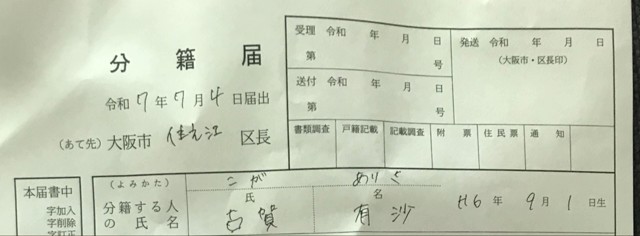 受理 令和 年 月 日
第 号
発送 令和 年 月 日
(大阪市・区長印)
分籍届
送付 令和 年 月 日
第 号
令和7年7月4日届出
(あて先)大阪市 住之江 区長
書類調査 戸籍記載 記載調査 附票 住民票 通知
本届書中
字加入
字削除
字訂正
(よみかた) こが ありさ
氏 名
分籍する人の氏名 古賀 有沙 H6年9月1日生